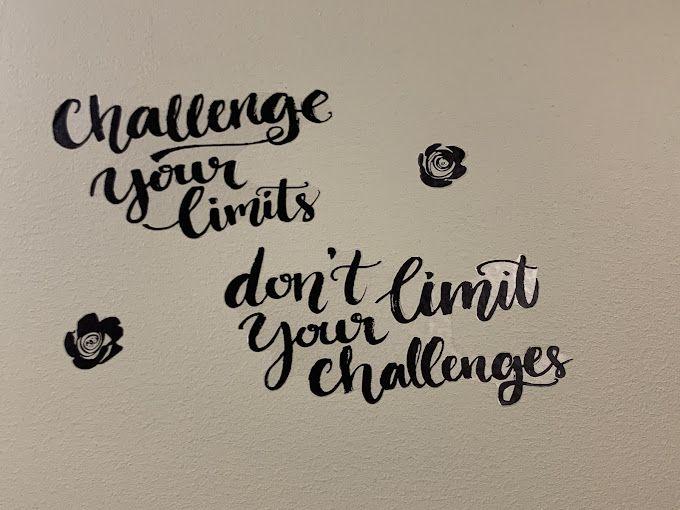 Challenge
your
limits
don't limit
your
challenges